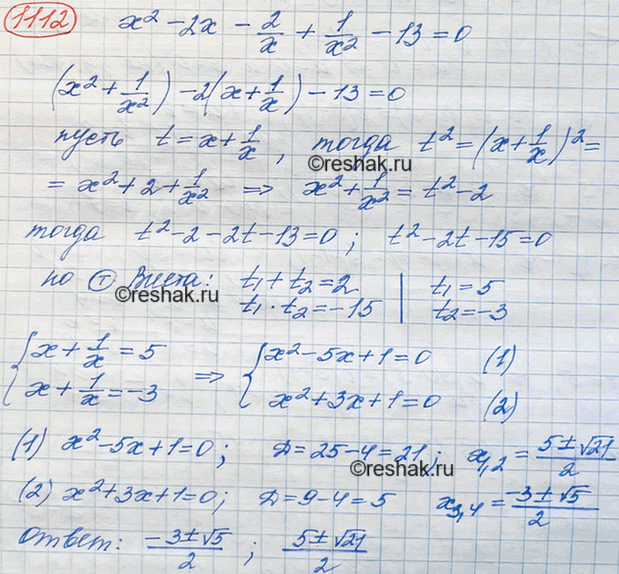 1112 x² - 2x - 2/x + 1/x² - 13 = 0
(x² + 1/x²) - 2(x + 1/x) - 13 = 0
пусть t = x + 1/x, тогда t² = (x + 1/x)² =
©reshak.ru
= x² + 2 + 1/x² ⇒ x² + 1/x² = t² - 2
тогда t² - 2 - 2t - 13 = 0; t² - 2t - 15 = 0
по Ⓣ Виета: t₁ + t₂ = 2 | t₁ = 5
©reshak.ru t₁ · t₂ = -15 | t₂ = -3
{ x + 1/x = 5 ⇒ { x² - 5x + 1 = 0 (1)
x + 1/x = -3 x² + 3x + 1 = 0 (2)
(1) x² - 5x + 1 = 0; D = 25 - 4 = 21; x₁,₂ = (5 ± √21)/2
©reshak.ru
(2) x² + 3x + 1 = 0; D = 9 - 4 = 5 x₃,₄ = (-3 ± √5)/2
Ответ: (-3 ± √5)/2; (5 ± √21)/2